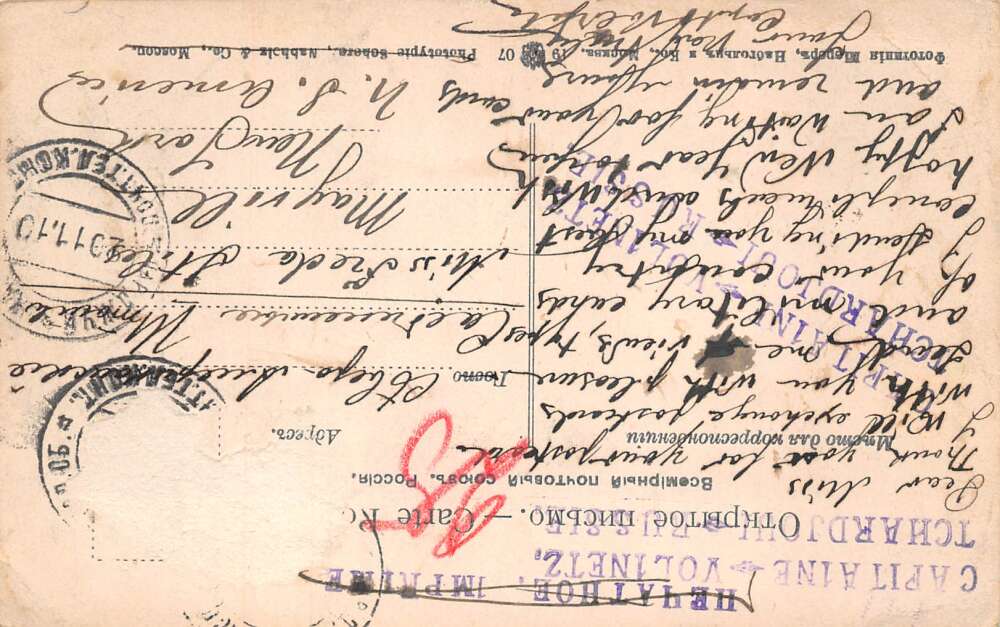 ПЕЧАТНОЕ. IMPRIMÉ
CAPITAINE VOLINETZ,
TCHARDJOUI RUSSIE.
Открытое письмо. — Carte
Всемірный почтовый союзъ. Россія.
Мѣсто для корреспонденціи
Адресъ.
Dear Miss
Thank you for your postcard.
I will exchange postcards
with you with pleasure.
Send me views, types
and military cards
of your country
I sending you my best
compliments and wish
happy New Year to you
I am waiting for your cards
and remain yours
CAPITAINE VOLINETZ
TCHARDJOUI RUSSIE.
Miss Freda Stiles
Mayvill
New York
N. S. America
20 11.10
Фототипія Шереръ, Набгольцъ и Ко., Москва. 19 07 Phototypie Scherer, Nabholz & Co., Moscou.